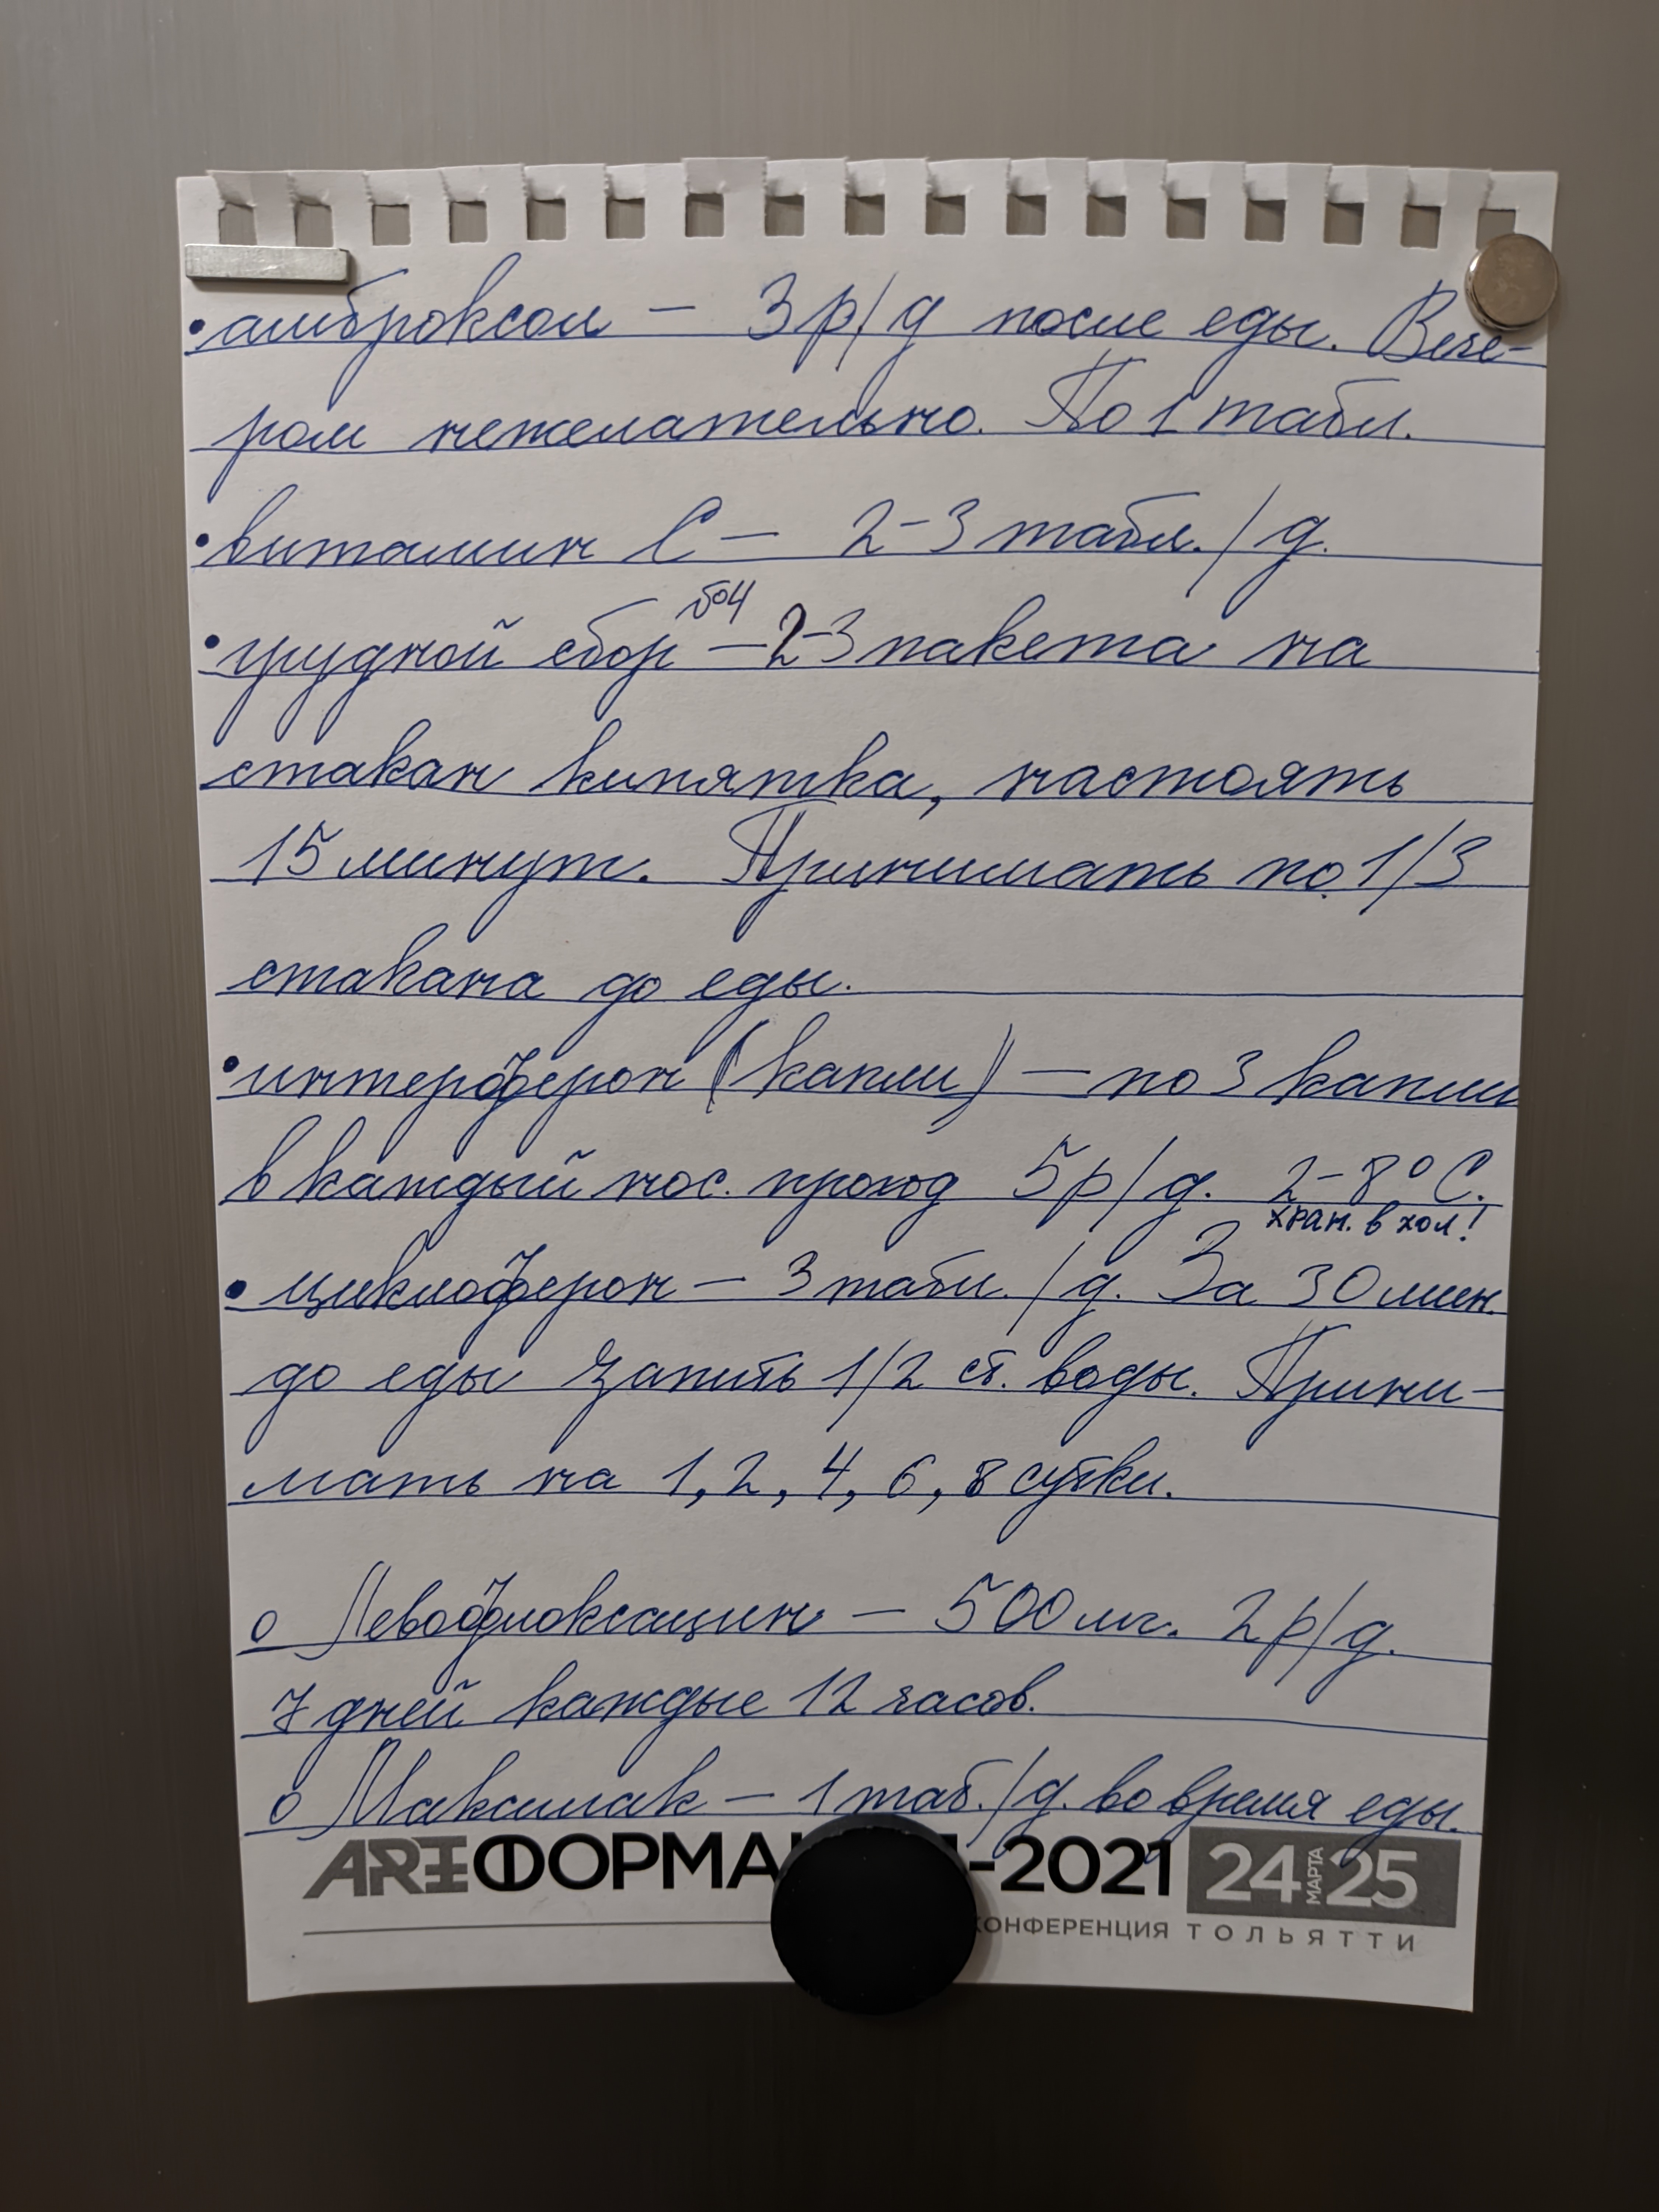 •амброксол — 3 р/д после еды. Вече-
ром нежелательно. По 1 табл.
•витамин С — 2-3 табл./д.
•грудной сбор №4 — 2-3 пакета на
стакан кипятка, настоять
15 минут. Принимать по 1/3
стакана до еды.
•интерферон (капли) — по 3 капли
в каждый нос. проход 5 р/д. 2-8°С.
хран. в хол!
•циклоферон — 3 табл./д. За 30 мин.
до еды запить 1/2 ст. воды. Прини-
мать на 1, 2, 4, 6, 8 сутки.
о Левофлоксацин — 500 мг. 2 р/д.
7 дней каждые 12 часов.
о Максилак — 1 таб./д. во время еды.
-2021 24 МАРТА 25
КОНФЕРЕНЦИЯ ТОЛЬЯТТИ